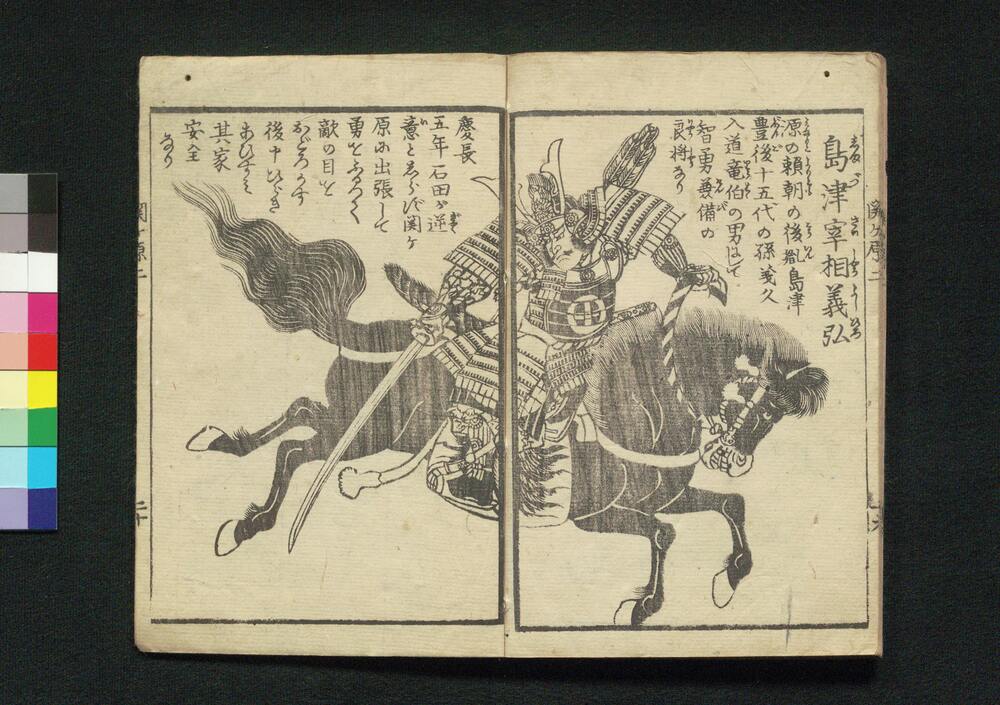 島津宰相義弘
源の頼朝の後胤島津
豊後十五代の孫義久
入道竜伯の男にして
智勇兼備の
良将なり
慶長
五年石田が逆
意とゑらび関ヶ
原に出張して
勇をふるつて
敵の目を
おどろかす
後十ひらき
あひすミ
其家
安全
なり
関ヶ原二